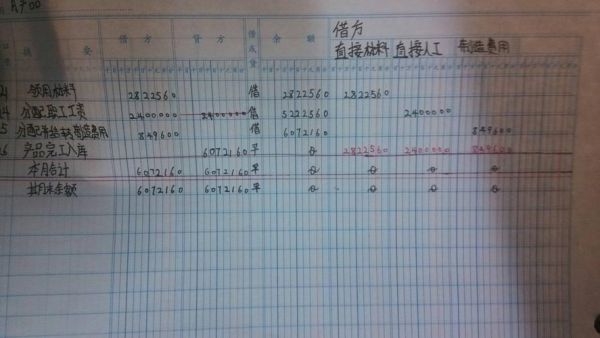 A产品
借方
摘 要 借 方 贷 方 借或贷 余 额 直接材料 直接人工 制造费用
领用材料 2822560 借 2822560 2822560
分配职工工资 2400000 2400000 借 5222560 2400000
849600 借 6072160 849600
产品完工入库 6072160 平 0 2822560 2400000 849600
本月合计 6072160 6072160 平 0 0 0 0
月末余额 6072160 6072160 平 0 0 0 0